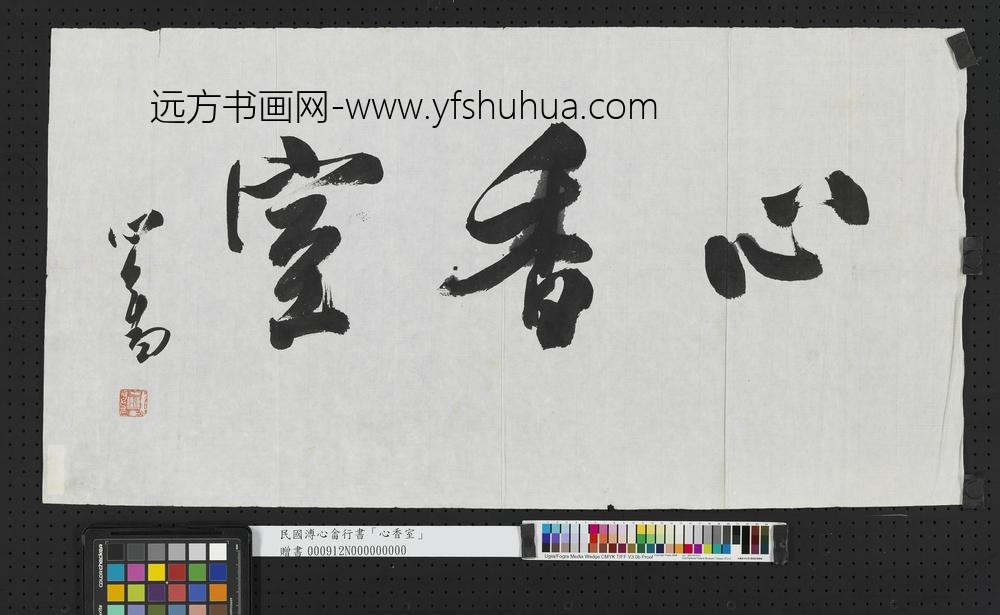 远方书画网-www.yfshuhua.com
心香室
心畬
民國溥心畬行書「心香室」
贈書 000912N000000000
Ugra/Fogra Media Wedge CMYK TIFF V3.0b Proof